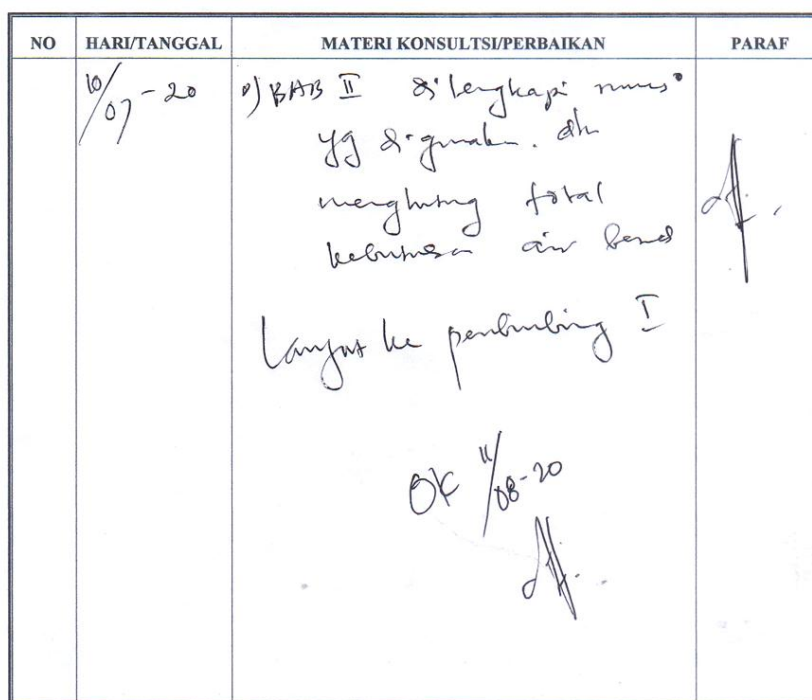 NO HARI/TANGGAL MATERI KONSULTSI/PERBAIKAN PARAF
10/07-20 BAB II dilengkapi rumus
yg digunakan. dlm
menghitung total
kebutuhan air
Lanjut ke pembimbing I
OK 11/08-20